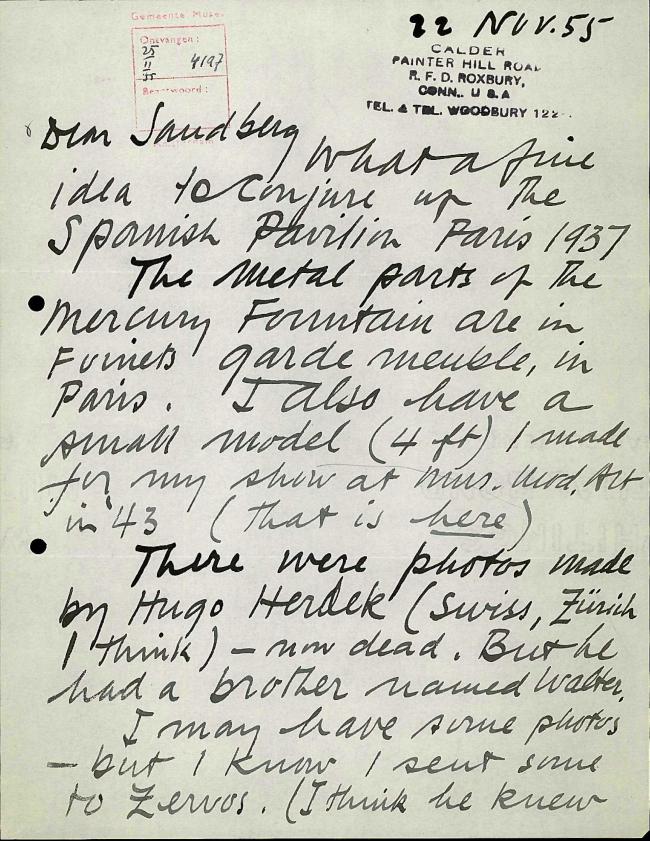 Gemeente Muse
Ontvangen:
25
11
55
4197
Beantwoord:
22 NOV. 55
CALDER
PAINTER HILL ROAD
R. F. D. ROXBURY,
CONN., U S A
TEL. & TEL. WOODBURY 122
Dear Sandberg
What a fine
idea to conjure up the
Spanish Pavilion Paris 1937
The metal parts of the
Mercury Fountain are in
Foinets garde meuble, in
Paris. I also have a
small model (4 ft) I made
for my show at Mus. Mod. Art
in '43 (that is here)
There were photos made
by Hugo Herdek (Swiss, Zürich
I think) – now dead. But he
had a brother named Walter.
I may have some photos
– but I know I sent some
to Zervos. (I think he knew